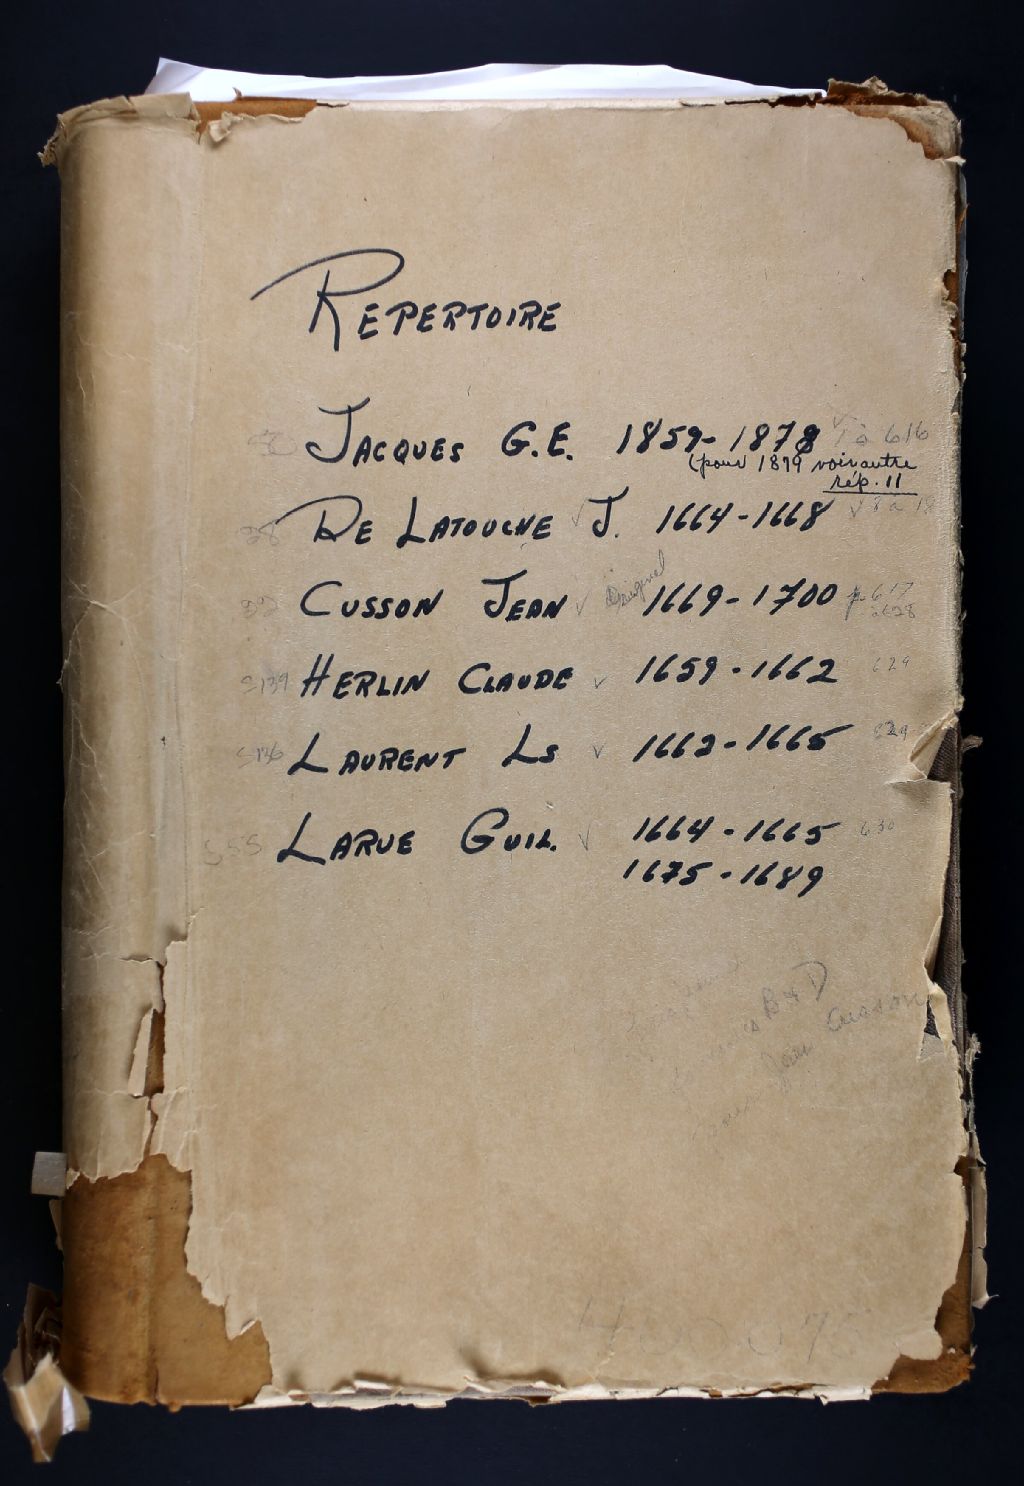 REPERTOIRE
JACQUES G.E. 1859-1878 à 616
(pour 1879 voir autre
rép. 11
DE LATOUCHE J. 1664-1668
CUSSON JEAN Original 1669-1700 p 617
à 628
S139 HERLIN CLAUDE 1659-1662 629
S136 LAURENT LS 1662-1665 629
S55 LARUE GUIL. 1664-1665 630
1675-1689
B & D
Jean Cusson